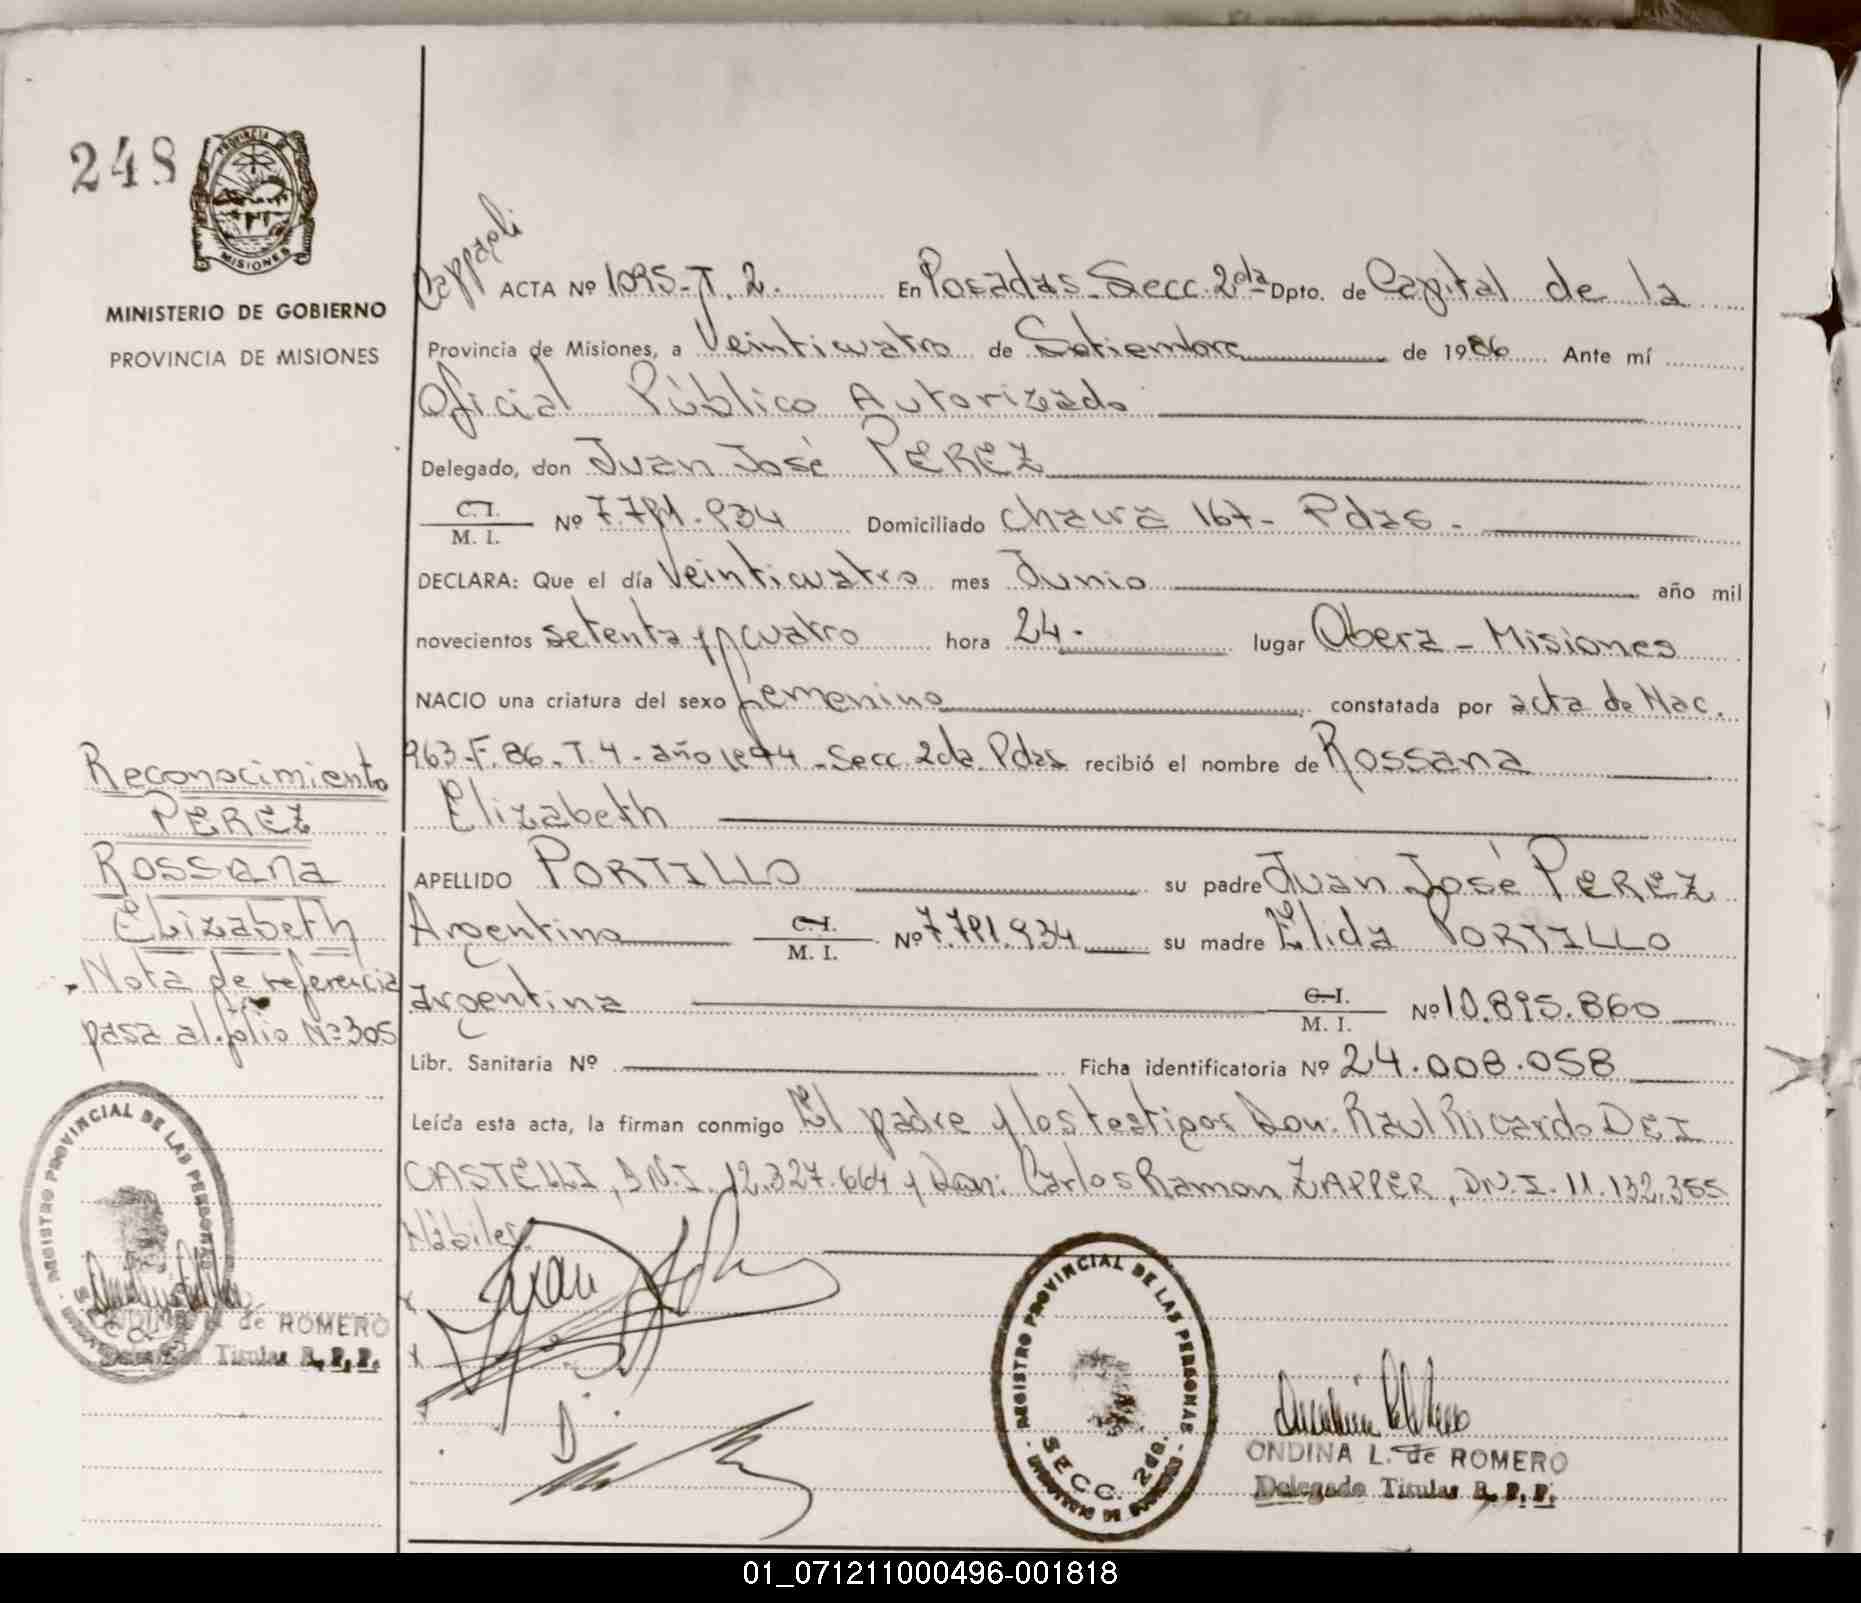 248
PROVINCIA DE
MISIONES
MINISTERIO DE GOBIERNO
PROVINCIA DE MISIONES
ACTA Nº 1095-T. 2. En Posadas-Secc. 2da Dpto. de Capital de la
Provincia de Misiones, a Veinticuatro de Setiembre de 1986 Ante mí
Oficial Público Autorizado
Delegado, don Juan José PEREZ
C.I.
M. I. Nº 7.791.934 Domiciliado 167- Pdas-
DECLARA: Que el día Veinticuatro mes Junio año mil
novecientos setenta y cuatro hora 24- lugar Obera-Misiones
NACIO una criatura del sexo femenino constatada por acta de Nac.
963-F. 86-T. 4-año -Secc 2da Pdas recibió el nombre de Rossana
Elizabeth
APELLIDO PORTILLO su padre Juan José PEREZ
Argentino C.I. M. I. Nº 7.791.934 su madre Elida PORTILLO
argentina C.I. M. I. Nº 10.895.860
Libr. Sanitaria Nº Ficha identificatoria Nº 24.008.058
Leída esta acta, la firman conmigo El padre y los testigos Don: Raul Ricardo DEI
CASTELLI, D.N.I. 12.327.664 y Don: Carlos Ramon ZAPPER, D.N.I. 11.132.355
Hábiles.
Reconocimiento
PEREZ
Rossana
Elizabeth
Nota de referencia
pasa al folio Nº 305
REGISTRO PROVINCIAL DE LAS PERSONAS
L. de ROMERO
Titular R. P. P.
Juan
REGISTRO PROVINCIAL DE LAS PERSONAS
SECC. 2da.
ONDINA L. de ROMERO
Delegado Titular R. P. P.
01_071211000496-001818